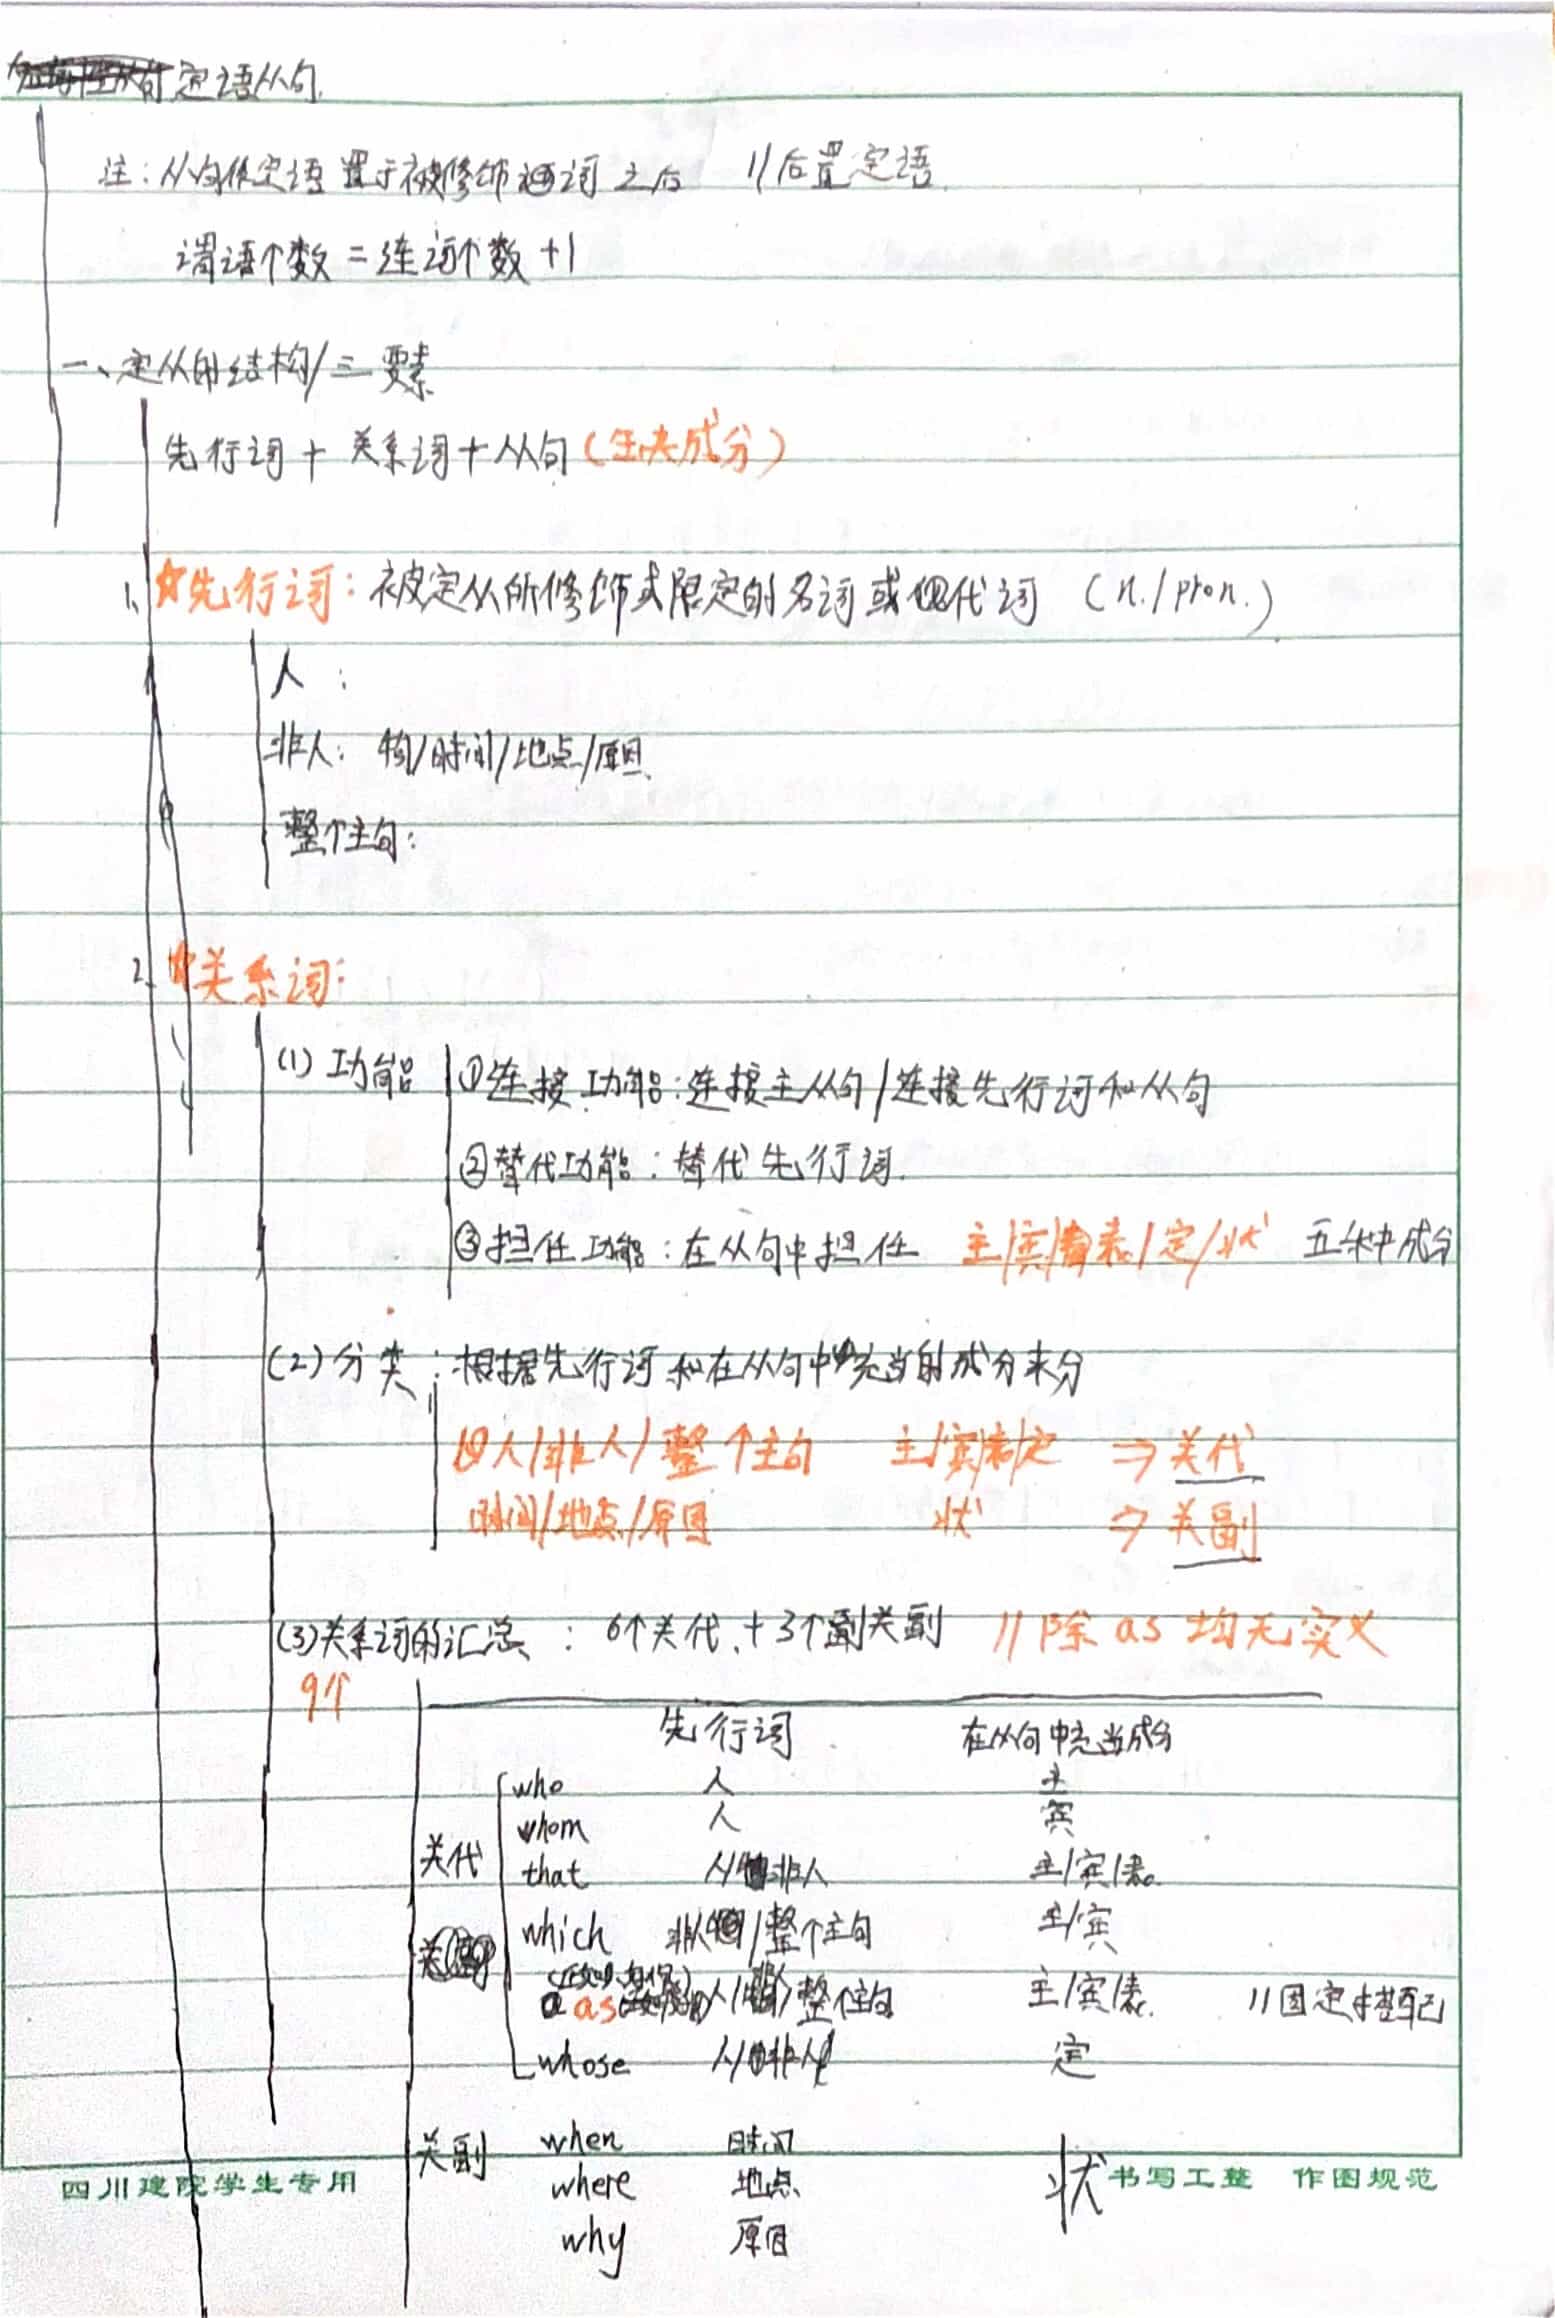 定语从句
注:从句作定语 置于被修饰词之后 //后置定语
谓语个数=连词个数+1
一、定从的结构/三要素
先行词+关系词+从句(缺成分)
1. ☆先行词:被定从所修饰或限定的名词或代词 (n./pron.)
人:
非人: 物/时间/地点/原因
整个主句:
2. ☆关系词:
(1) 功能 ①连接功能:连接主从句/连接先行词和从句
②替代功能:替代先行词
③担任功能:在从句中担任 主/宾/表/定/状 五种成分
(2)分类:根据先行词和在从句中充当的成分来分
人/非人/整个主句 主/宾/表/定 ⇒ 关代
时间/地点/原因 状 ⇒ 关副
(3)关系词的汇总:6个关代+3个关副 //除as均无实义
9个
先行词 在从句中充当成分
who 人 主
whom 人 宾
关代 that 人/非人 主/宾/表
which 非人/整个主句 主/宾
as 人/非人/整个主句 主/宾/表 //固定搭配
whose 人/非人 定
关副 when 时间
where 地点 状
why 原因
四川建院学生专用 书写工整 作图规范